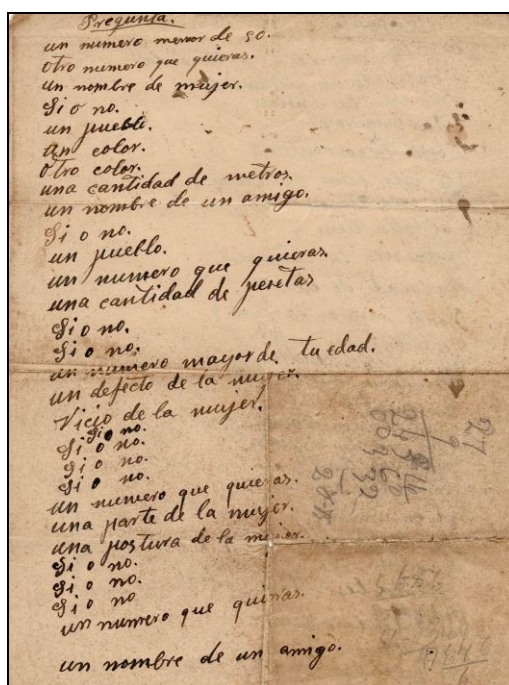 Pregunta.
un numero menor de 50.
Otro numero que quieras.
un nombre de mujer.
Si o no.
un pueblo.
un color.
Otro color.
una cantidad de metros.
un nombre de un amigo.
Si o no.
un pueblo.
un numero que quieras.
una cantidad de pesetas
Si o no.
Si o no.
un numero mayor de tu edad.
un defecto de la mujer.
Vicio de la mujer.
Si o no.
Si o no.
Si o no.
Si o no.
un numero que quieras.
una parte de la mujer.
una postura de la mujer.
Si o no.
Si o no.
Si o no
un numero que quieras.
un nombre de un amigo.
27
9